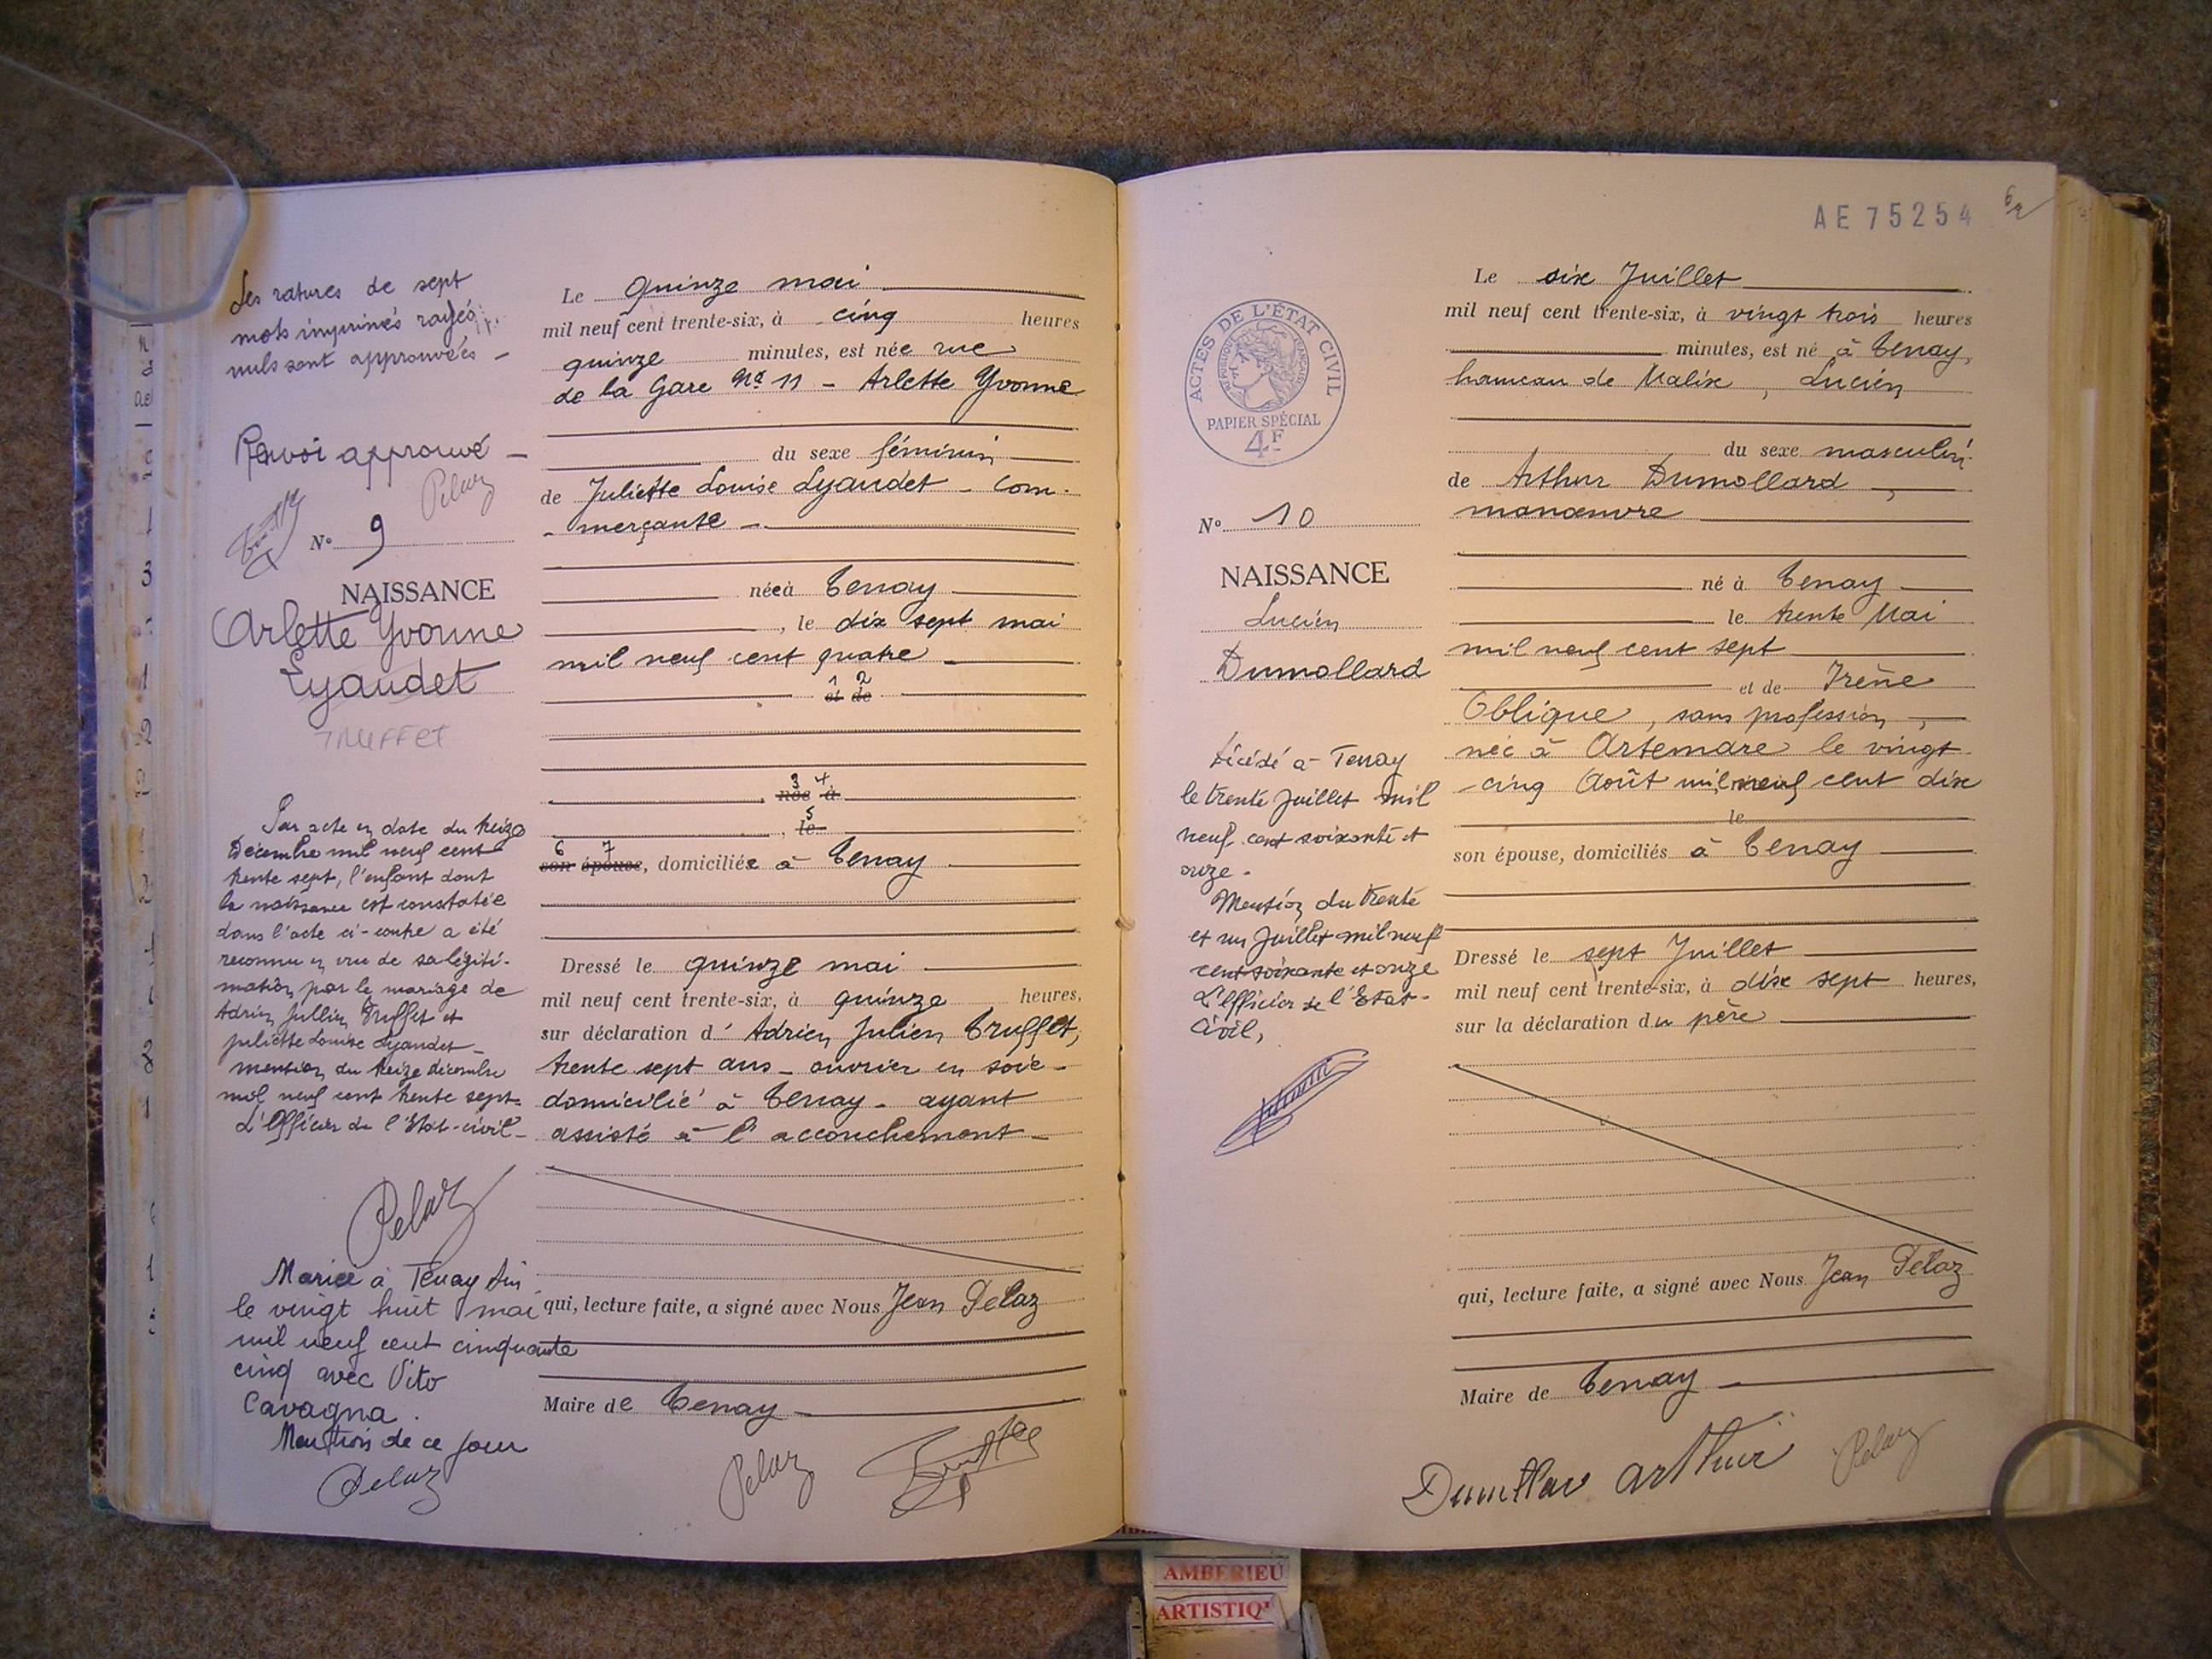 Les ratures de sept
mots imprimés rayés
nuls sont approuvées -
Renvoi approuvé -
Pelaz
N° 9
NAISSANCE
Arlette Yvonne
Lyaudet
TRUFFET
Par acte en date du treize
Décembre mil neuf cent
trente sept, l'enfant dont
la naissance est constatée
dans l'acte ci-contre a été
reconnu en vue de sa légiti-
mation par le mariage de
Adrien Jullien Truffet et
Juliette Louise Lyaudet -
mention du treize décembre
mil neuf cent trente sept.
L'Officier de l'Etat-civil -
Pelaz
Mariée à Tenay Ain
le vingt huit mai
mil neuf cent cinquante
cinq avec Vito
Cavagna.
Mention de ce jour
Pelaz
Le quinze mai
mil neuf cent trente-six, à cinq heures
quinze minutes, est née rue
de la Gare N° 11 - Arlette Yvonne
du sexe féminin
de Juliette Louise Lyaudet - com-
- merçante -
née à Tenay
, le dix sept mai
mil neuf cent quatre -
1 2
et de
3 4
, née à
5
, le
6 7
son épouse, domiciliée à Tenay
Dressé le quinze mai
mil neuf cent trente-six, à quinze heures,
sur déclaration d'Adrien Julien Truffet,
trente sept ans - ouvrier en soie -
domicilié à Tenay - ayant
assisté à l'accouchement -
qui, lecture faite, a signé avec Nous Jean Pelaz
Maire de Tenay -
Pelaz
AE 75254
ACTES DE L'ÉTAT CIVIL
RÉPUBLIQUE FRANÇAISE
PAPIER SPÉCIAL
4F
N° 10
NAISSANCE
Lucien
Dumollard
Décédé à Tenay
le trente Juillet mil
neuf cent soixante et
onze -
Mention du trente
et un Juillet mil neuf
cent soixante et onze
L'Officier de l'Etat-
Civil,
Le six Juillet
mil neuf cent trente-six, à vingt trois heures
minutes, est né à Tenay,
hameau de Malix, Lucien
du sexe masculin
de Arthur Dumollard,
manœuvre
né à Tenay
le trente Mai
mil neuf cent sept
et de Irène
Oblique, sans profession,
née à Artemare le vingt
-cinq Août mil neuf cent dix
le
son épouse, domiciliés à Tenay
Dressé le sept Juillet
mil neuf cent trente-six, à dix sept heures,
sur la déclaration du père
qui, lecture faite, a signé avec Nous Jean Pelaz
Maire de Tenay -
arthur
Pelaz
AMBERIEU
ARTISTIQ'